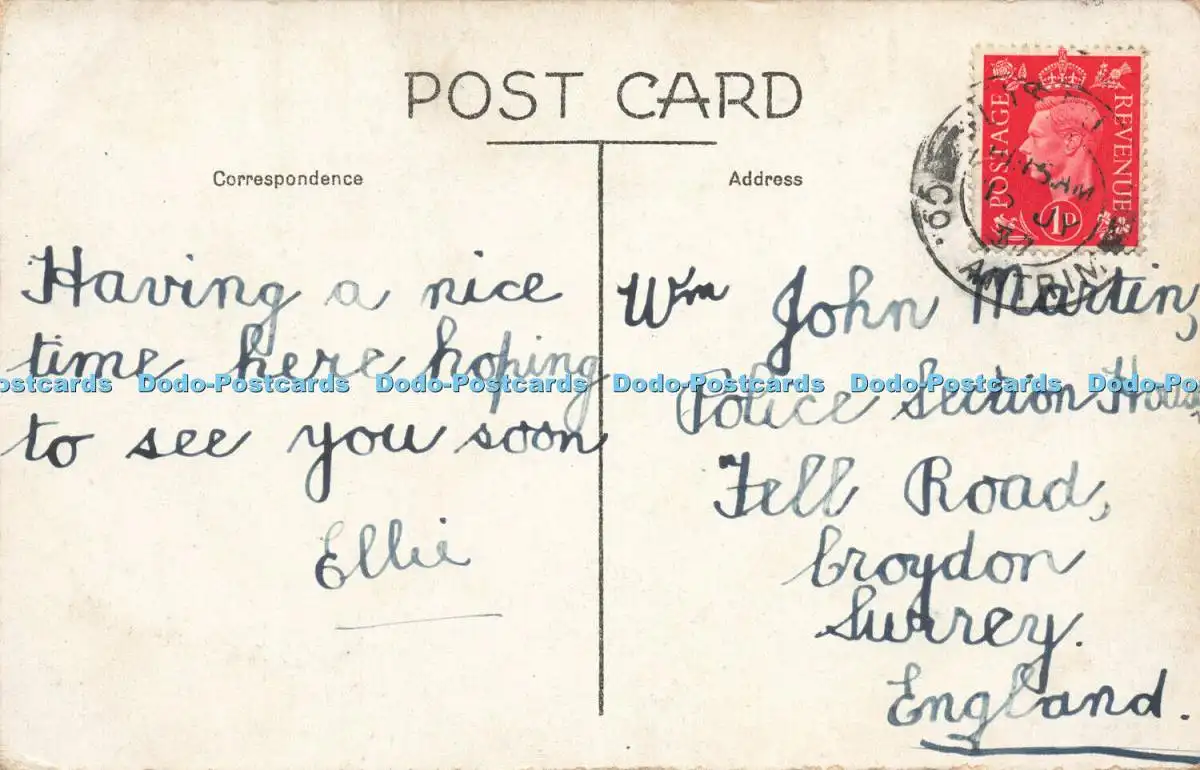 POST CARD
Correspondence
Address
POSTAGE
REVENUE
1D
65
ANTRIM
Having a nice
time here hoping
to see you soon
Ellie
Wm John Martin,
Police Section House
Fell Road,
Croydon
Surrey.
England.
Dodo-Postcards Dodo-Postcards Dodo-Postcards Dodo-Postcards Dodo-Postcards